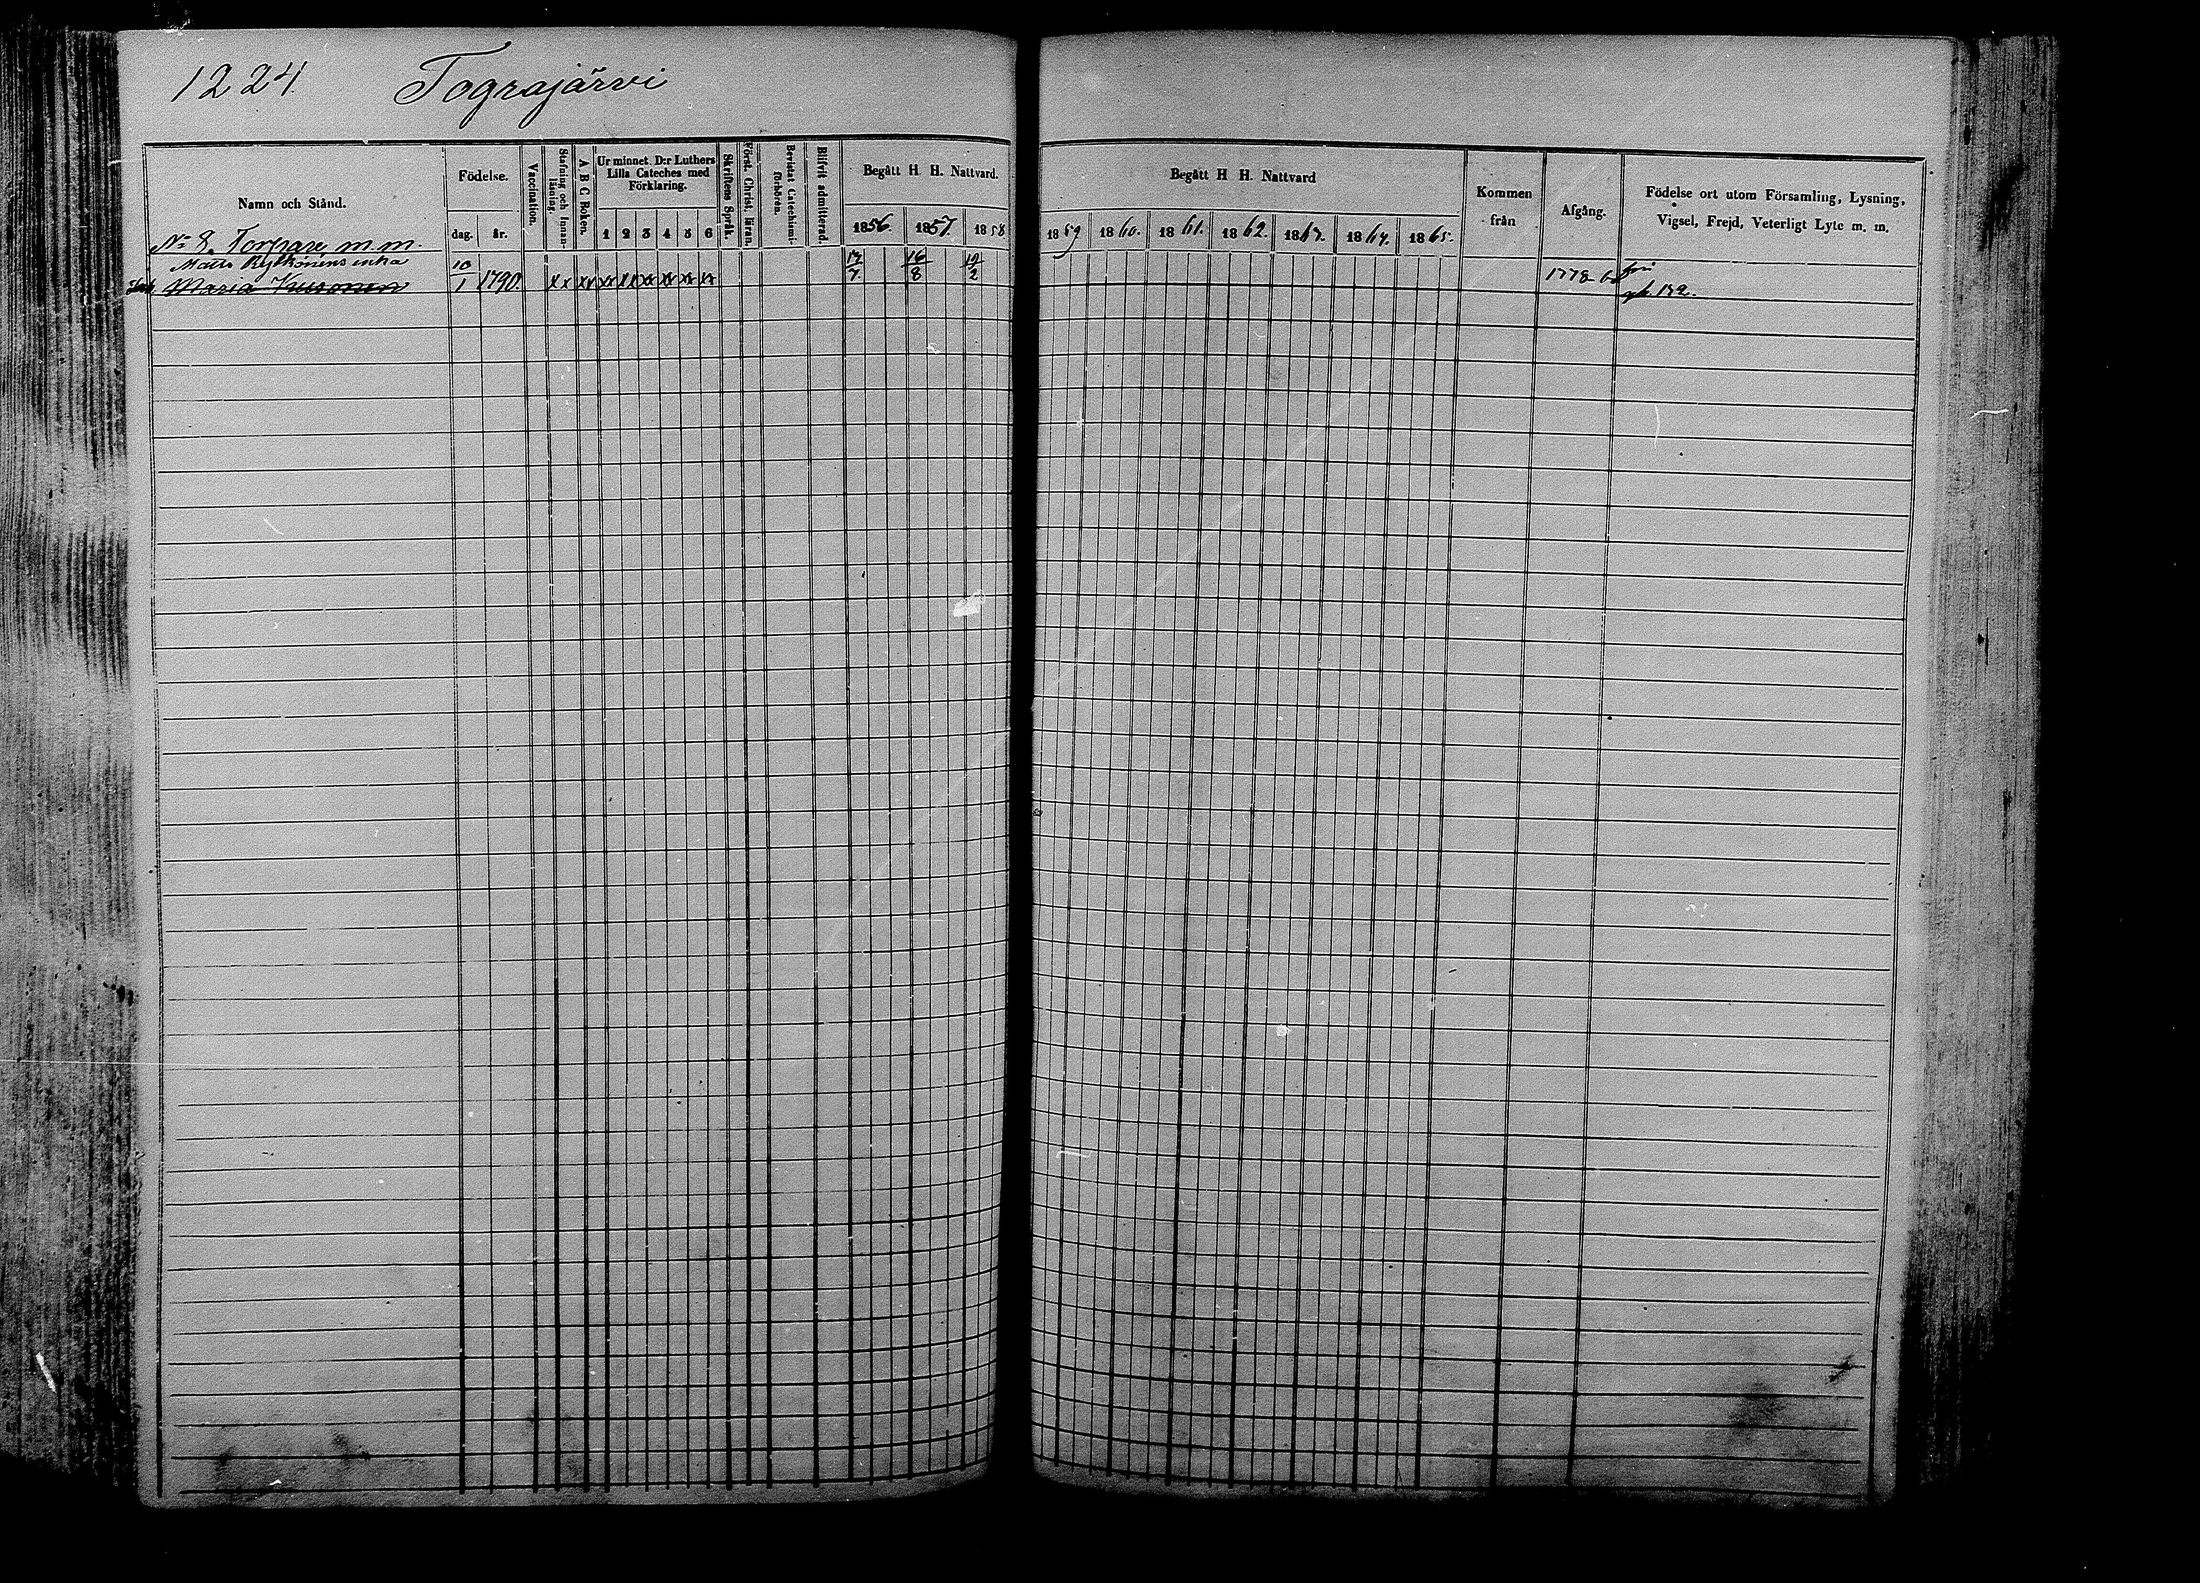 1224 Tograjärvi
Namn och Stånd.
Födelse.
dag. år.
Vaccination.
Stafning och Innanläsning.
A B C Boken.
Ur minnet. D:r Luthers
Lilla Cateches med
Förklaring.
1 2 3 4 5 6
Skriftens Språk.
Först. Christ. läran.
Bevistat Catechismiförhören.
Blifvit admitterad.
Begått H. H. Nattvard.
1856. 1857. 1858
Begått H H. Nattvard
1859 1860. 1861. 1862. 1863. 1864. 1865.
Kommen
från
Afgång.
Födelse ort utom Församling, Lysning,
Vigsel, Frejd, Veterligt Lyte m. m.
No 8. Torpare m. m.
Matts Rytkönens enka
Maria 10/1 1790. xx xx xx xx xx xx xx xx 17/7 16/8 19/2 1778